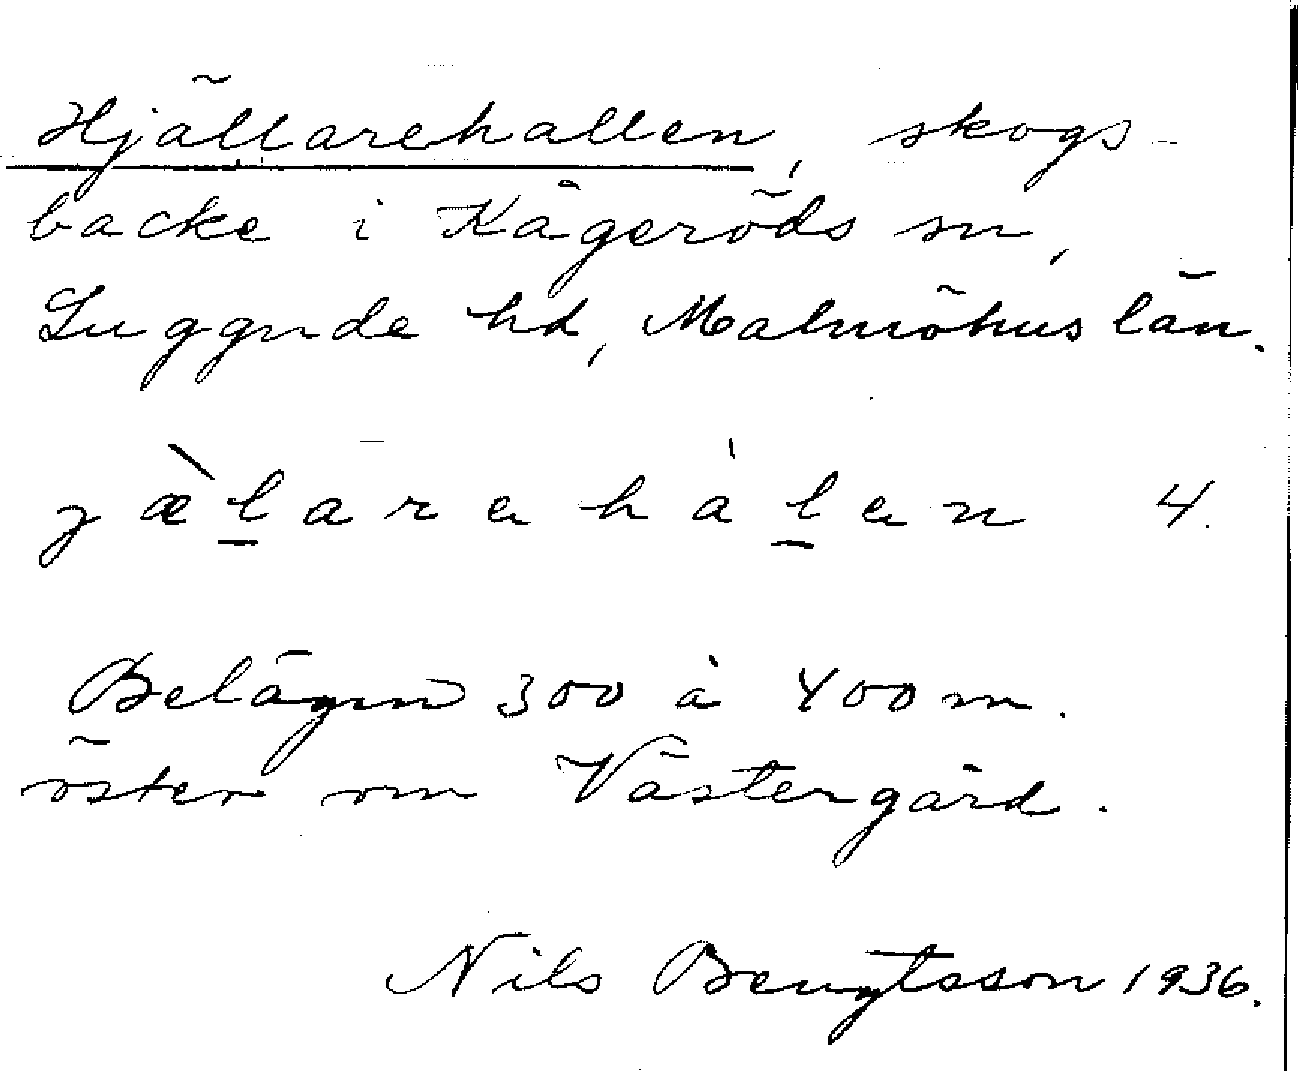 Hjällarehallen, skogs-
backe i Kågeröds sn,
Luggude hd, Malmöhus län.
jæ̀l̠arehàl̠en 4.
Belägen 300 à 400 m.
öster om Västergård.
Nils Bengtsson 1936.